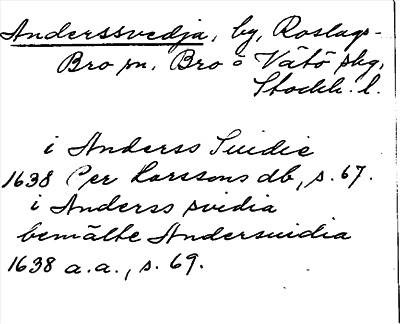 Anderssvedja, by, Roslags-
Bro sn. Bro o Vätö skg,
Stockh. l.
i Anderss Suidie
1638 Per Larssons db, s. 67.
i Anderss svidia
bemälte Andersuidia
1638 a.a., s. 69.